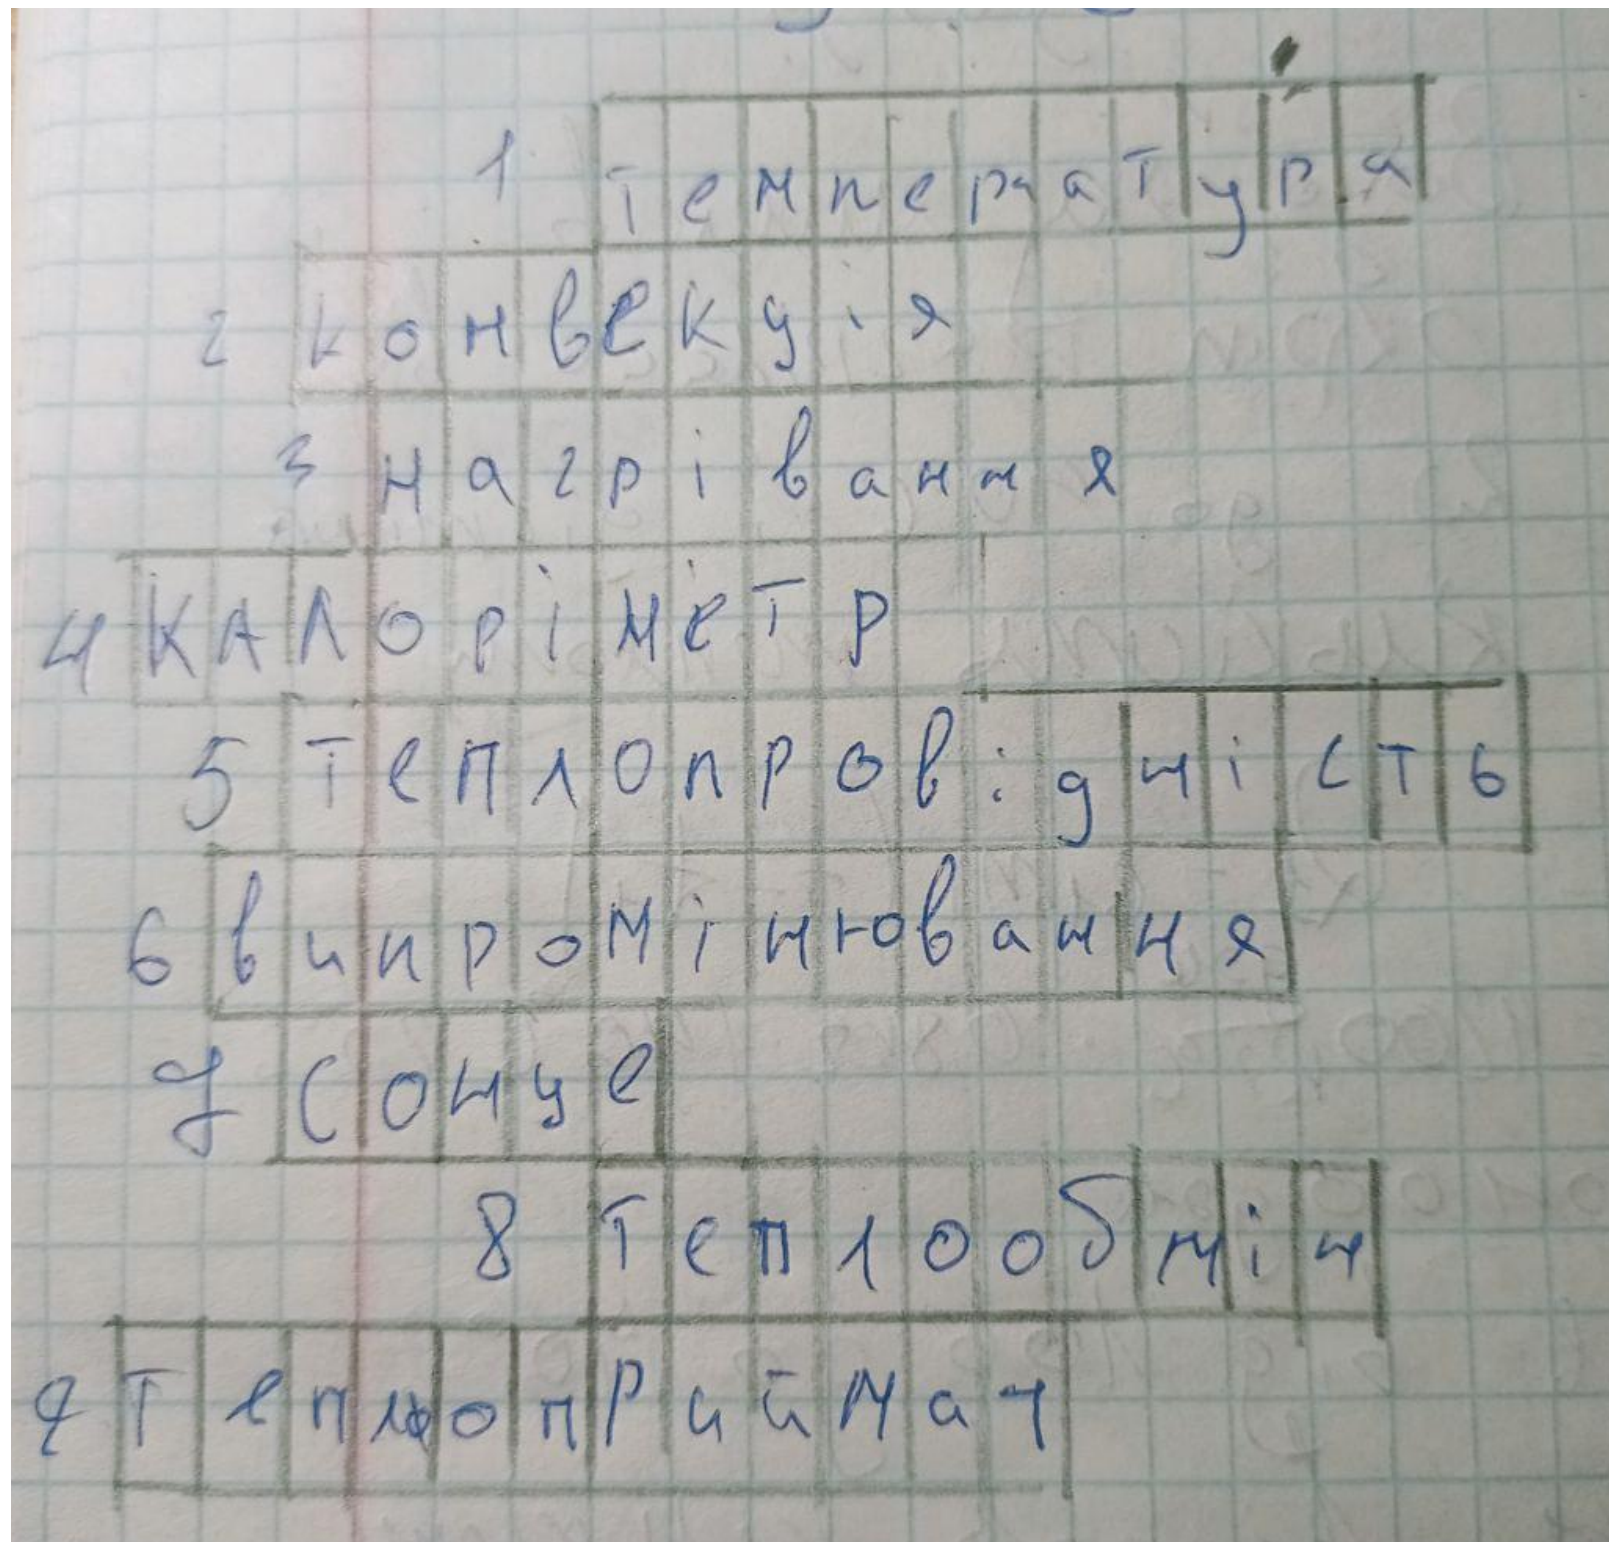 1 температура
2 конвекція
3 нагрівання
4 КАЛОРІМЕТР
5 теплопровідність
6 випромінювання
7 сонце
8 теплообмін
9 теплоприймач